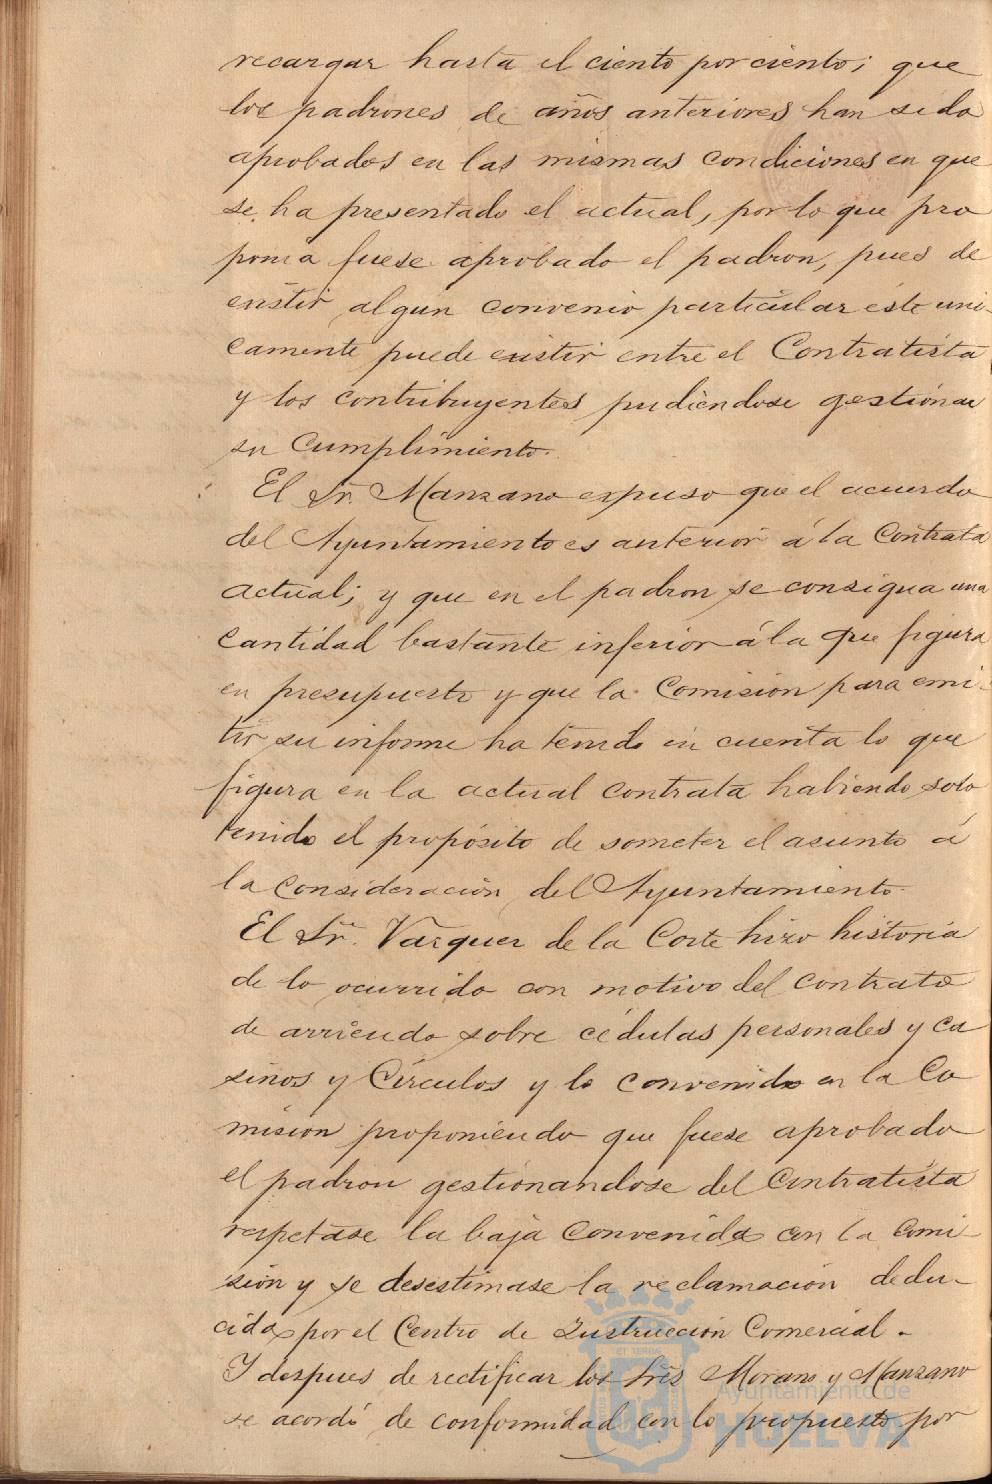 recargar hasta el ciento por ciento; que
los padrones de años anteriores han sido
aprobados en las mismas condiciones en que
se ha presentado el actual, por lo que pro
ponia fuese aprobado el padron, pues de
existir algun convenio particular éste uni-
camente puede existir entre el Contratista
y los contribuyentes pudiéndose gestionar
su cumplimiento.
El Sr. Manzano expuso que el acuerdo
del Ayuntamiento es anterior á la Contrata
actual; y que en el padron se consigna una
cantidad bastante inferior á la que figura
en presupuesto y que la Comision para emi-
tir su informe ha tenido en cuenta lo que
figura en la actual contrata habiendo solo
tenido el propósito de someter el asunto á
la consideración del Ayuntamiento.
El Sr. Vazquez de la Corte hizo historia
de lo ocurrido con motivo del contrato
de arriendo sobre cédulas personales y ca
sinos y Círculos y lo convenido en la Co
mision proponiendo que fuese aprobado
el padron gestionandose del Contratista
respetase la baja convenida con la Comi-
sión y se desestimase la reclamación dedu-
cida por el Centro de Instrucción Comercial.
Y despues de rectificar los Sres Morano y Manzano
se acordó de conformidad con lo propuesto por
Ayuntamiento de
HUELVA